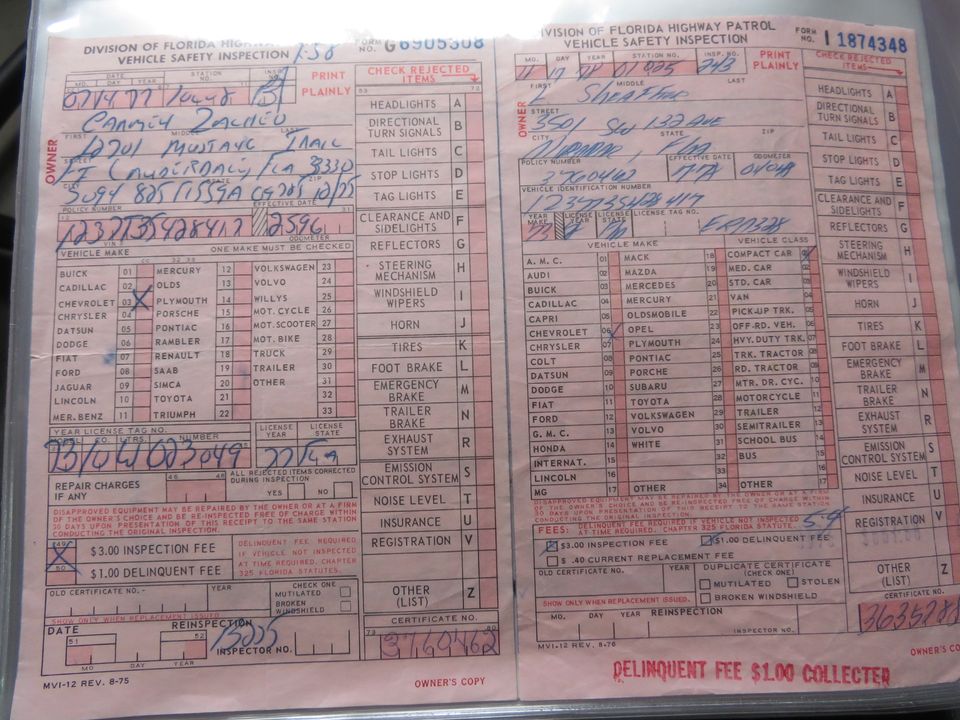 DIVISION OF FLORIDA HIGHWAY
VEHICLE SAFETY INSPECTION
FORM NO. G 6905308
DATE
MO. DAY YEAR
STATION NO.
PRINT PLAINLY
CHECK REJECTED ITEMS
53 72
OWNER
FIRST MIDDLE LAST
STREET
CITY STATE ZIP
POLICY NUMBER
EFFECTIVE DATE
VIN
ODOMETER
VEHICLE MAKE
ONE MAKE MUST BE CHECKED
BUICK 01
CADILLAC 02
CHEVROLET 03 X
CHRYSLER 04
DATSUN 05
DODGE 06
FIAT 07
FORD 08
JAGUAR 09
LINCOLN 10
MER. BENZ 11
MERCURY 12
OLDS 13
PLYMOUTH 14
PORSCHE 15
PONTIAC 16
RAMBLER 17
RENAULT 18
SAAB 19
SIMCA 20
TOYOTA 21
TRIUMPH 22
VOLKSWAGEN 23
VOLVO 24
WILLYS 25
MOT. CYCLE 26
MOT. SCOOTER 27
MOT. BIKE 28
TRUCK 29
TRAILER 30
OTHER 31
32
33
YEAR LICENSE TAG NO.
NUMBER
LICENSE YEAR
LICENSE STATE
REPAIR CHARGES IF ANY
46 48
ALL REJECTED ITEMS CORRECTED DURING INSPECTION
YES NO
DISAPPROVED EQUIPMENT MAY BE REPAIRED BY THE OWNER OR AT A FIRM
OF THE OWNER'S CHOICE AND BE RE-INSPECTED FREE OF CHARGE WITHIN
30 DAYS UPON PRESENTATION OF THIS RECEIPT TO THE SAME STATION
CONDUCTING THE ORIGINAL INSPECTION.
49 X $3.00 INSPECTION FEE
50 $1.00 DELINQUENT FEE
DELINQUENT FEE REQUIRED
IF VEHICLE NOT INSPECTED
AT TIME REQUIRED. CHAPTER
325 FLORIDA STATUTES.
OLD CERTIFICATE NO.
YEAR
CHECK ONE
MUTILATED
BROKEN WINDSHIELD
SHOW ONLY WHEN REPLACEMENT ISSUED
DATE
REINSPECTION
51 52
MO DAY YEAR
INSPECTOR NO.
HEADLIGHTS A
DIRECTIONAL TURN SIGNALS B
TAIL LIGHTS C
STOP LIGHTS D
TAG LIGHTS E
CLEARANCE AND SIDELIGHTS F
REFLECTORS G
STEERING MECHANISM H
WINDSHIELD WIPERS I
HORN J
TIRES K
FOOT BRAKE L
EMERGENCY BRAKE M
TRAILER BRAKE N
EXHAUST SYSTEM R
EMISSION CONTROL SYSTEM S
NOISE LEVEL T
INSURANCE U
REGISTRATION V
OTHER (LIST) Z
CERTIFICATE NO.
73 80
3760462
MVI-12 REV. 8-75
OWNER'S COPY
DIVISION OF FLORIDA HIGHWAY PATROL
VEHICLE SAFETY INSPECTION
FORM NO. I 1874348
MO. DAY YEAR
STATION NO.
INSP. NO.
PRINT PLAINLY
CHECK REJECTED ITEMS
OWNER
FIRST MIDDLE LAST
STREET
3501 SW 132 AVE
CITY STATE ZIP
POLICY NUMBER
EFFECTIVE DATE
ODOMETER
3760462
VEHICLE IDENTIFICATION NUMBER
YEAR MAKE
LICENSE YEAR
LICENSE STATE
LICENSE TAG NO.
VEHICLE MAKE
A. M. C. 01
AUDI 02
BUICK 03
CADILLAC 04
CAPRI 05
CHEVROLET 06
CHRYSLER 07
COLT 08
DATSUN 09
DODGE 10
FIAT 11
FORD 12
G. M. C. 13
HONDA 14
INTERNAT. 15
LINCOLN 16
MG 17
MACK 18
MAZDA 19
MERCEDES 20
MERCURY 21
OLDSMOBILE 22
OPEL 23
PLYMOUTH 24
PONTIAC 25
PORCHE 26
SUBARU 27
TOYOTA 28
VOLKSWAGEN 29
VOLVO 30
WHITE 31
32
33
OTHER 34
VEHICLE CLASS
COMPACT CAR
MED. CAR 02
STD. CAR 03
VAN 04
PICK-UP TRK. 05
OFF-RD. VEH. 06
HVY. DUTY TRK. 07
TRK. TRACTOR 08
RD. TRACTOR 09
MTR. DR. CYC. 10
MOTORCYCLE 11
TRAILER 12
SEMITRAILER 13
SCHOOL BUS 14
BUS 15
16
OTHER 17
DISAPPROVED EQUIPMENT MAY BE REPAIRED BY THE OWNER OR AT A FIRM
OF THE OWNER'S CHOICE AND BE RE-INSPECTED FREE OF CHARGE WITHIN
30 DAYS UPON PRESENTATION OF THIS RECEIPT TO THE SAME STATION
CONDUCTING THE ORIGINAL INSPECTION.
FEES: DELINQUENT FEE REQUIRED IF VEHICLE NOT INSPECTED
AT TIME REQUIRED. CHAPTER 325 FLORIDA STATUTES.
$3.00 INSPECTION FEE $1.00 DELINQUENT FEE
$ .40 CURRENT REPLACEMENT FEE
OLD CERTIFICATE NO. YEAR
DUPLICATE CERTIFICATE (CHECK ONE)
MUTILATED STOLEN
BROKEN WINDSHIELD
SHOW ONLY WHEN REPLACEMENT ISSUED
MO. DAY YEAR
REINSPECTION
INSPECTOR NO.
HEADLIGHTS A
DIRECTIONAL TURN SIGNALS B
TAIL LIGHTS C
STOP LIGHTS D
TAG LIGHTS E
CLEARANCE AND SIDELIGHTS F
REFLECTORS G
STEERING MECHANISM H
WINDSHIELD WIPERS I
HORN J
TIRES K
FOOT BRAKE L
EMERGENCY BRAKE M
TRAILER BRAKE N
EXHAUST SYSTEM R
EMISSION CONTROL SYSTEM S
NOISE LEVEL T
INSURANCE U
REGISTRATION V
OTHER (LIST) Z
CERTIFICATE NO.
MVI-12 REV. 8-76
OWNER'S CO
DELINQUENT FEE $1.00 COLLECTED